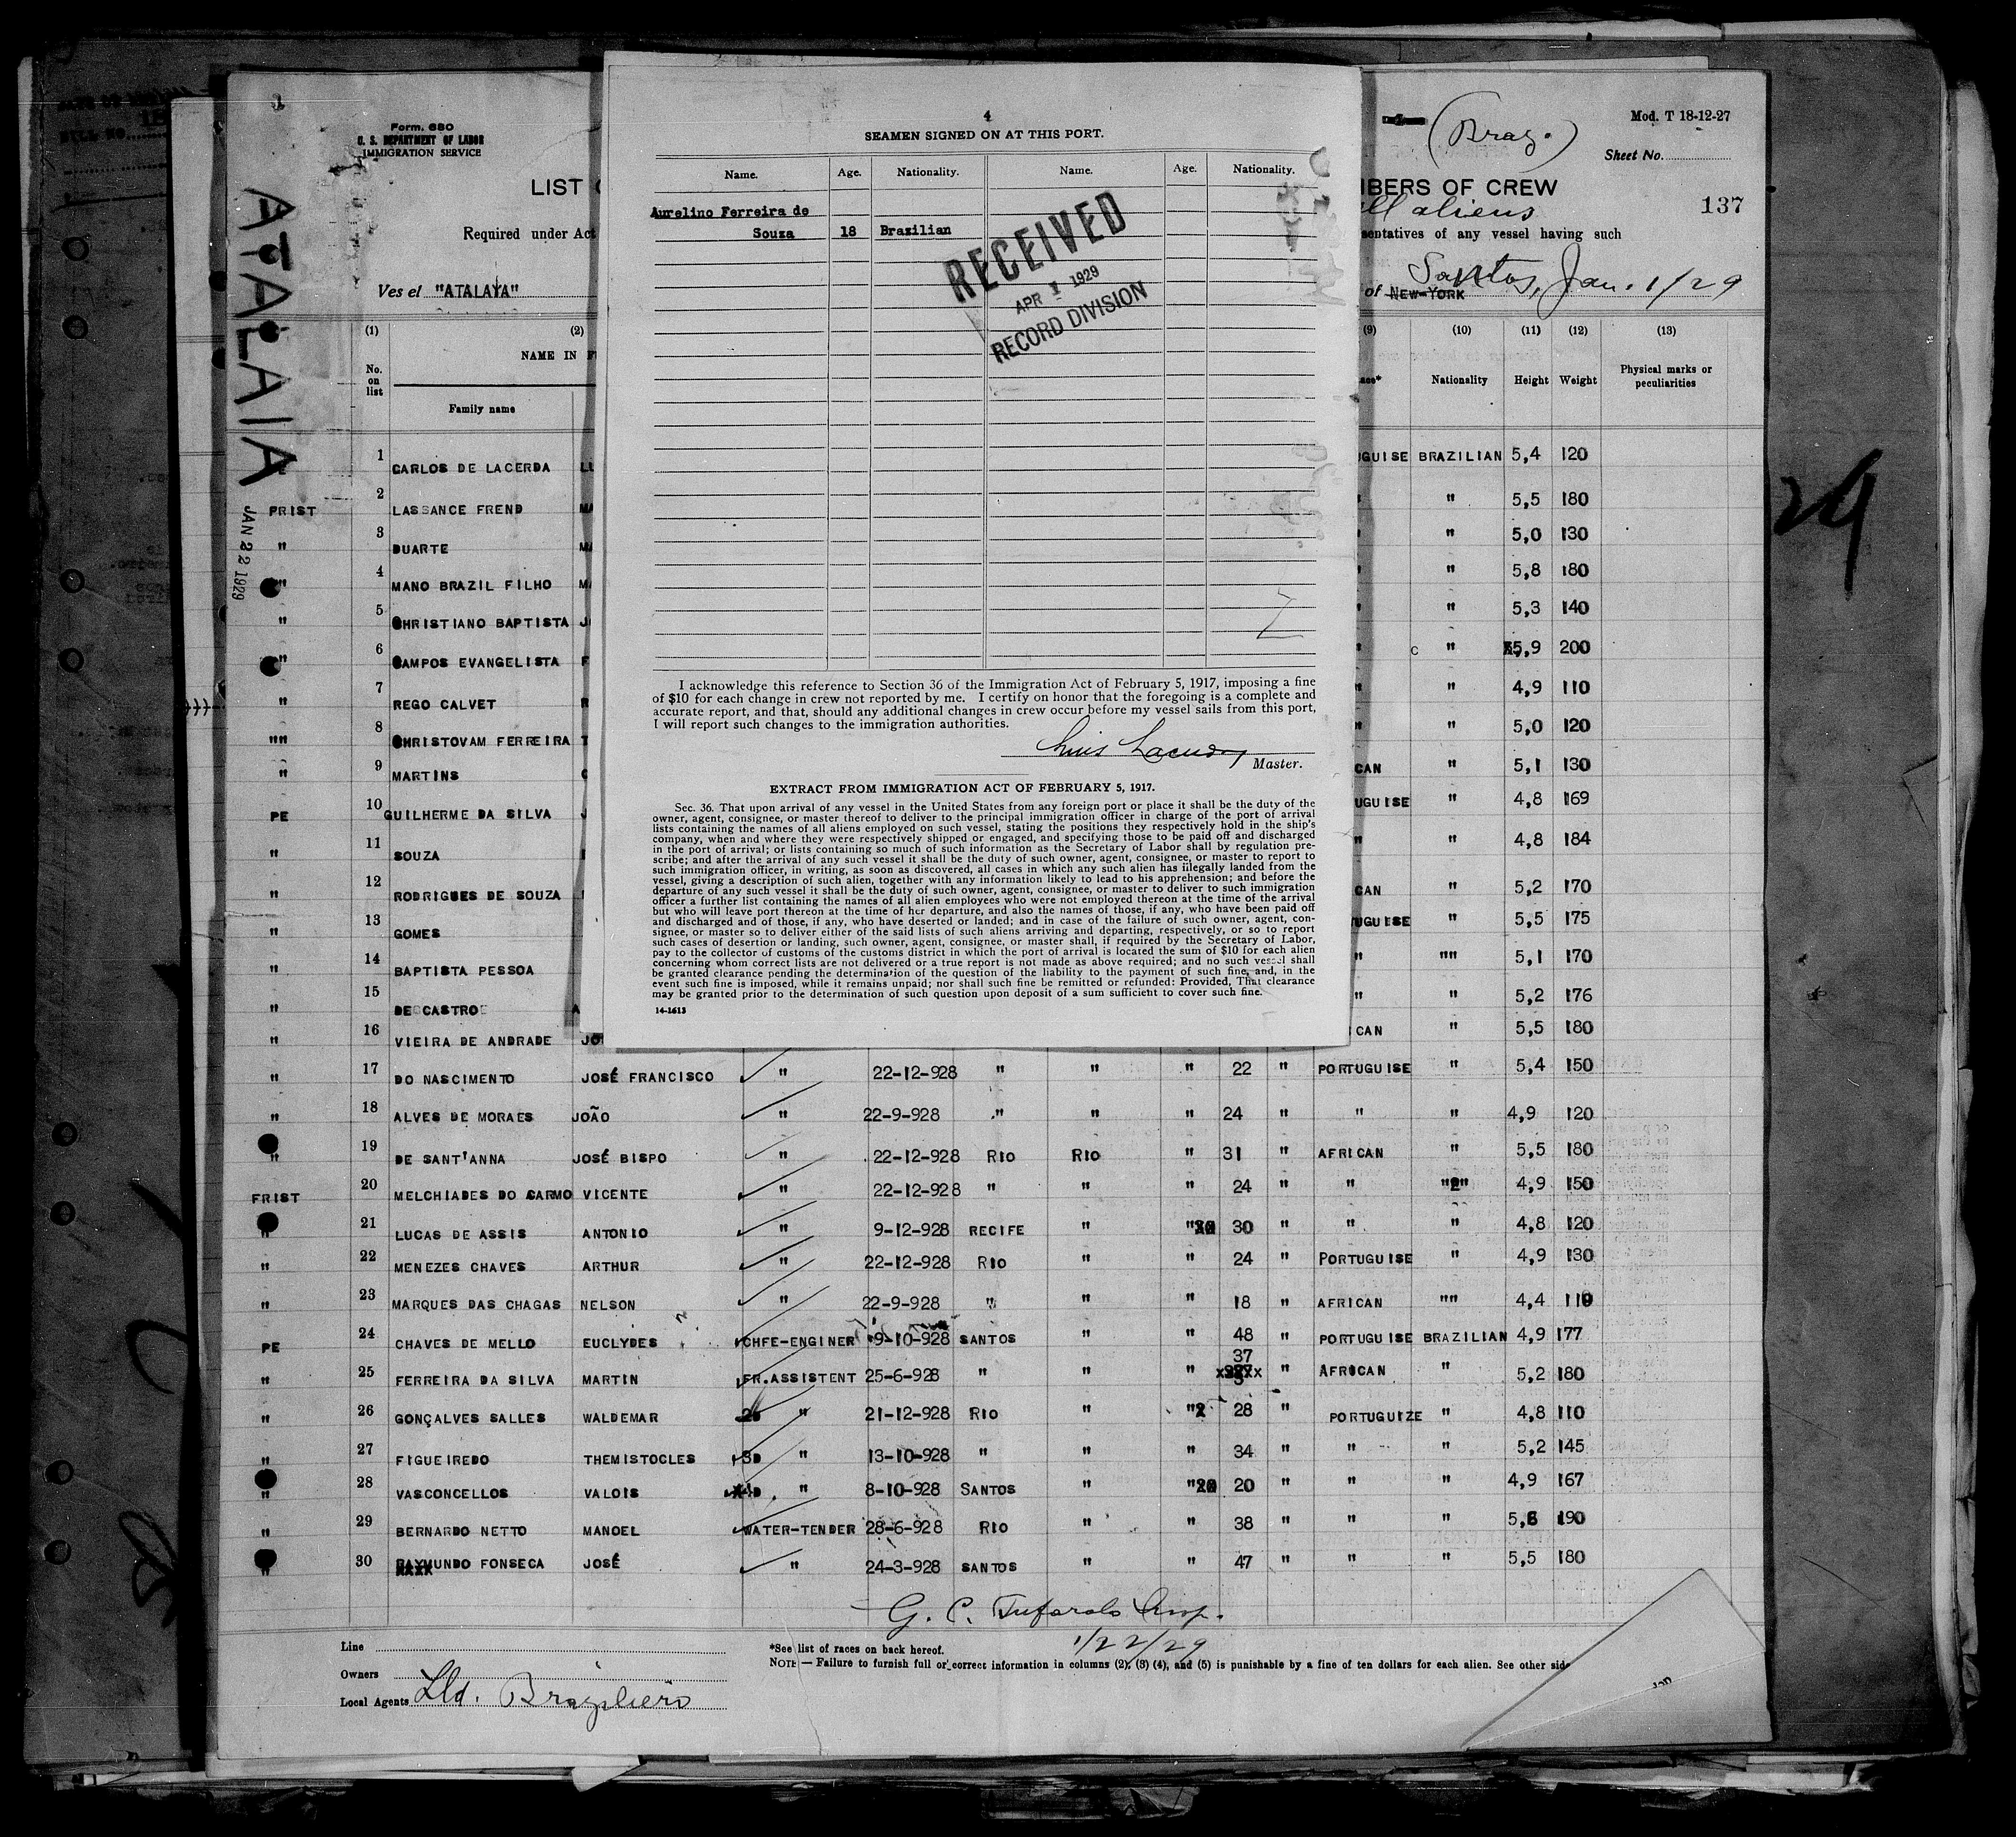 4
SEAMEN SIGNED ON AT THIS PORT.
Name. Age. Nationality. Name. Age. Nationality.
Aurelino Ferreira de
Souza 18 Brazilian
RECEIVED
APR 1 1929
RECORD DIVISION
I acknowledge this reference to Section 36 of the Immigration Act of February 5, 1917, imposing a fine
of $10 for each change in crew not reported by me. I certify on honor that the foregoing is a complete and
accurate report, and that, should any additional changes in crew occur before my vessel sails from this port,
I will report such changes to the immigration authorities.
Master.
EXTRACT FROM IMMIGRATION ACT OF FEBRUARY 5, 1917.
Sec. 36. That upon arrival of any vessel in the United States from any foreign port or place it shall be the duty of the
owner, agent, consignee, or master thereof to deliver to the principal immigration officer in charge of the port of arrival
lists containing the names of all aliens employed on such vessel, stating the positions they respectively hold in the ship's
company, when and where they were respectively shipped or engaged, and specifying those to be paid off and discharged
in the port of arrival; or lists containing so much of such information as the Secretary of Labor shall by regulation pre-
scribe; and after the arrival of any such vessel it shall be the duty of such owner, agent, consignee, or master to report to
such immigration officer, in writing, as soon as discovered, all cases in which any such alien has illegally landed from the
vessel, giving a description of such alien, together with any information likely to lead to his apprehension; and before the
departure of any such vessel it shall be the duty of such owner, agent, consignee, or master to deliver to such immigration
officer a further list containing the names of all alien employees who were not employed thereon at the time of the arrival
but who will leave port thereon at the time of her departure, and also the names of those, if any, who have been paid off
and discharged and of those, if any, who have deserted or landed; and in case of the failure of such owner, agent, con-
signee, or master so to deliver either of the said lists of such aliens arriving and departing, respectively, or so to report
such cases of desertion or landing, such owner, agent, consignee, or master shall, if required by the Secretary of Labor,
pay to the collector of customs of the customs district in which the port of arrival is located the sum of $10 for each alien
concerning whom correct lists are not delivered or a true report is not made as above required; and no such vessel shall
be granted clearance pending the determination of the question of the liability to the payment of such fine, and, in the
event such fine is imposed, while it remains unpaid; nor shall such fine be remitted or refunded: Provided, That clearance
may be granted prior to the determination of such question upon deposit of a sum sufficient to cover such fine.
14-1613
Form. 680
U. S. DEPARTMENT OF LABOR
IMMIGRATION SERVICE
(Braz.)
Mod. T 18-12-27
Sheet No.
LIST
BERS OF CREW
all aliens
137
Required under Act
sentatives of any vessel having such
Santos, Jan. 1/29
Ves el "ATALAYA"
of NEW-YORK
ATALAIA
JAN 22 1929
29
(1) (2) (9) (10) (11) (12) (13)
No. on list NAME IN Family name Nationality Height Weight Physical marks or peculiarities
1 CARLOS DE LACERDA GUISE BRAZILIAN 5,4 120
FRIST 2 LASSANCE FREND " 5,5 180
" 3 DUARTE " 5,0 130
" 4 MANO BRAZIL FILHO " 5,8 180
" 5 CHRISTIANO BAPTISTA " 5,3 140
" 6 CAMPOS EVANGELISTA c " 5,9 200
" 7 REGO CALVET " 4,9 110
"" 8 CHRISTOVAM FERREIRA " 5,0 120
" 9 MARTINS CAN " 5,1 130
PE 10 GUILHERME DA SILVA UGUISE " 4,8 169
" 11 SOUZA " " 4,8 184
" 12 RODRIGUES DE SOUZA CAN " 5,2 170
" 13 GOMES UGUISE " 5,5 175
" 14 BAPTISTA PESSOA " "" 5,1 170
" 15 DE CASTRO " " 5,2 176
" 16 VIEIRA DE ANDRADE JO ICAN " 5,5 180
" 17 DO NASCIMENTO JOSÉ FRANCISCO " 22-12-928 " " " 22 " PORTUGUISE " 5,4 150
" 18 ALVES DE MORAES JOÃO " 22-9-928 " " " 24 " " " 4,9 120
" 19 DE SANT'ANNA JOSÉ BISPO " 22-12-928 RIO RIO " 31 " AFRICAN " 5,5 180
FRIST 20 MELCHIADES DO CARMO VICENTE " 22-12-928 " " " 24 " " "2" 4,9 150
" 21 LUCAS DE ASSIS ANTONIO " 9-12-928 RECIFE " " 30 " " " 4,8 120
" 22 MENEZES CHAVES ARTHUR " 22-12-928 RIO " " 24 " PORTUGUISE " 4,9 130
" 23 MARQUES DAS CHAGAS NELSON " 22-9-928 " " " 18 " AFRICAN "" 4,4 110
PE 24 CHAVES DE MELLO EUCLYDES CHFE-ENGINER 9-10-928 SANTOS " " 48 " PORTUGUISE BRAZILIAN 4,9 177
" 25 FERREIRA DA SILVA MARTIN FR.ASSISTENT 25-6-928 " " " 37 " AFRICAN " 5,2 180
" 26 GONÇALVES SALLES WALDEMAR " 21-12-928 RIO " " 28 " PORTUGUIZE " 4,8 110
" 27 FIGUEIREDO THEMISTOCLES 3D " 13-10-928 " " " 34 " " " 5,2 145
" 28 VASCONCELLOS VALOIS " 8-10-928 SANTOS " "20 20 " " " 4,9 167
" 29 BERNARDO NETTO MANOEL WATER-TENDER 28-6-928 RIO " " 38 " " " 5,6 190
" 30 RAYMUNDO FONSECA JOSÉ " 24-3-928 SANTOS " " 47 " " " 5,5 180
G. C. Tufarolo Insp.
1/22/29
Line
Owners
Local Agents Lld. Braziliero
*See list of races on back hereof.
NOTE — Failure to furnish full or correct information in columns (2), (3) (4), and (5) is punishable by a fine of ten dollars for each alien. See other side